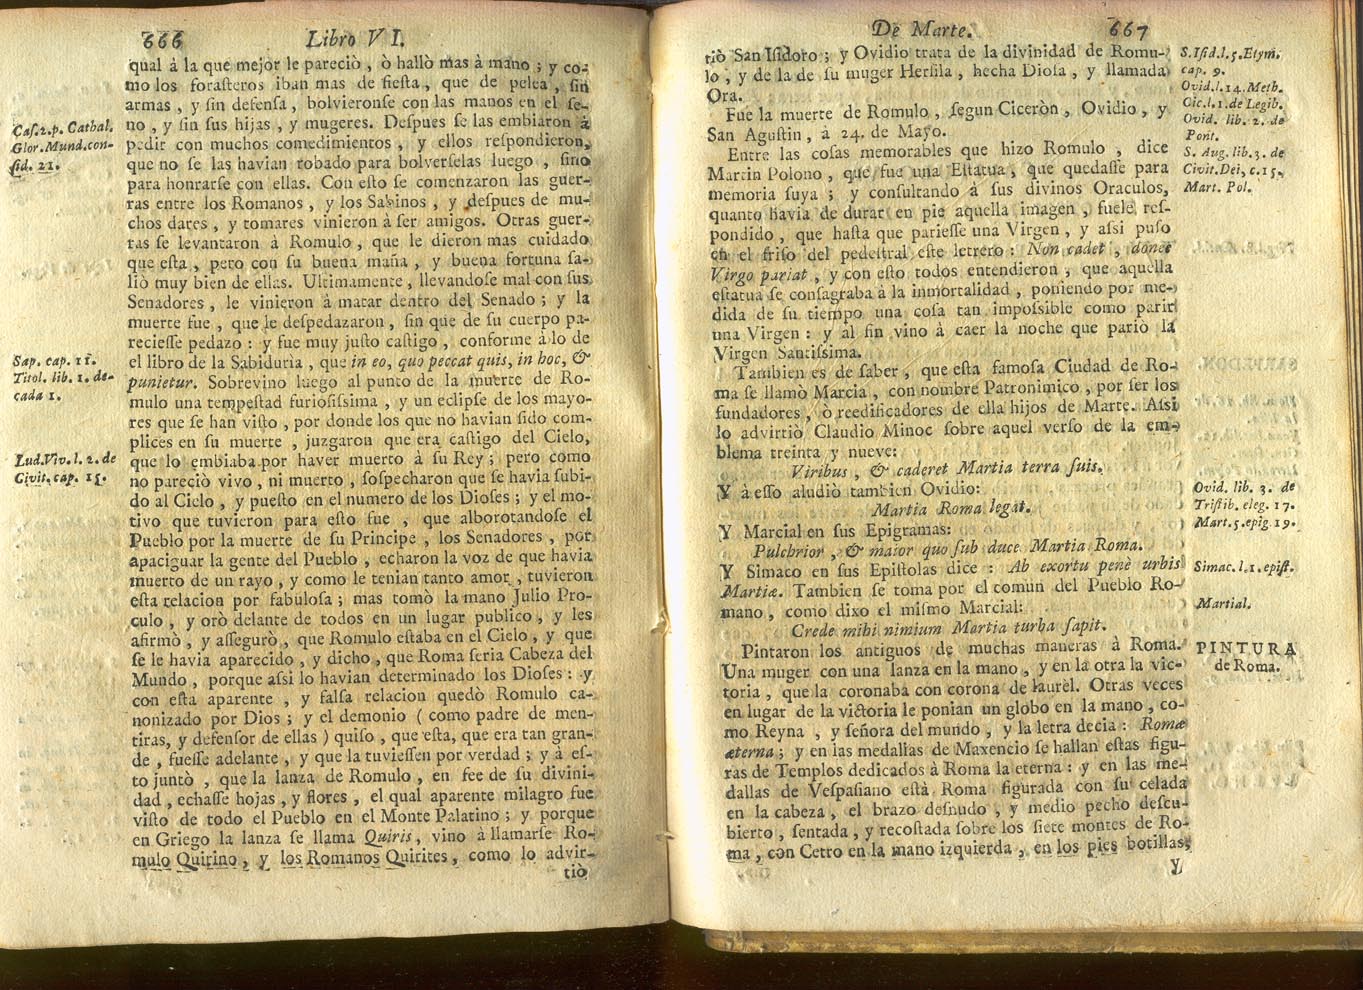 666
Libro VI.
qual à la que mejor le pareciò, ò hallò mas à mano; y co-
mo los foraſteros iban mas de fieſta, que de pelea, ſin
armas, y ſin defenſa, bolvieronſe con las manos en el ſe-
no, y ſin ſus hijas, y mugeres. Deſpues ſe las embiaron à
pedir con muchos comedimientos, y ellos reſpondieron,
que no ſe las havian robado para bolverſelas luego, ſino
para honrarſe con ellas. Con eſto ſe comenzaron las guer-
ras entre los Romanos, y los Sabinos, y deſpues de mu-
chos dares, y tomares vinieron à ſer amigos. Otras guer-
ras ſe levantaron à Romulo, que le dieron mas cuidado
que eſta, pero con ſu buena maña, y buena fortuna ſa-
liò muy bien de ellas. Ultimamente, llevandoſe mal con ſus
Senadores, le vinieron à matar dentro del Senado; y la
muerte fue, que le deſpedazaron, ſin que de ſu cuerpo pa-
recieſſe pedazo: y fue muy juſto caſtigo, conforme à lo de
el libro de la Sabiduria, que in eo, quo peccat quis, in hoc, &
punietur. Sobrevino luego al punto de la muerte de Ro-
mulo una tempeſtad furioſiſsima, y un eclipſe de los mayo-
res que ſe han viſto, por donde los que no havian ſido com-
plices en ſu muerte, juzgaron que era caſtigo del Cielo,
que lo embiaba por haver muerto à ſu Rey; pero como
no pareciò vivo, ni muerto, ſoſpecharon que ſe havia ſubi-
do al Cielo, y pueſto en el numero de los Dioſes; y el mo-
tivo que tuvieron para eſto fue, que alborotandoſe el
Pueblo por la muerte de ſu Principe, los Senadores, por
apaciguar la gente del Pueblo, echaron la voz de que havia
muerto de un rayo, y como le tenian tanto amor, tuvieron
eſta relacion por fabuloſa; mas tomò la mano Julio Pro-
culo, y orò delante de todos en un lugar publico, y les
afirmò, y aſſegurò, que Romulo eſtaba en el Cielo, y que
ſe le havia aparecido, y dicho, que Roma ſeria Cabeza del
Mundo, porque aſsi lo havian determinado los Dioſes: y
con eſta aparente, y falſa relacion quedò Romulo ca-
nonizado por Dios; y el demonio (como padre de men-
tiras, y defenſor de ellas) quiſo, que eſta, que era tan gran-
de, fueſſe adelante, y que la tuvieſſen por verdad; y à eſ-
to juntò, que la lanza de Romulo, en fee de ſu divini-
dad, echaſſe hojas, y flores, el qual aparente milagro fue
viſto de todo el Pueblo en el Monte Palatino; y porque
en Griego la lanza ſe llama Quiris, vino à llamarſe Ro-
mulo Quirino, y los Romanos Quirites, como lo advir-
tiò
Caſ. 2. p. Cathal.
Glor. Mund. con-
ſid. 21.
Sap. cap. 11.
Titol. lib. 1. de-
cada 1.
Lud. Viv. l. 2. de
Civit. cap. 15.
De Marte.
667
tiò San Iſidoro; y Ovidio trata de la divinidad de Romu-
lo, y de la de ſu muger Herſila, hecha Dioſa, y llamada
Ora.
Fue la muerte de Romulo, ſegun Ciceròn, Ovidio, y
San Aguſtin, à 24. de Mayo.
Entre las coſas memorables que hizo Romulo, dice
Martin Polono, que fue una Eſtatua, que quedaſſe para
memoria ſuya; y conſultando à ſus divinos Oraculos,
quanto havia de durar en pie aquella imagen, fuele reſ-
pondido, que haſta que parieſſe una Virgen, y aſsi puſo
en el friſo del pedeſtral eſte letrero: Non cadet, donec
Virgo pariat, y con eſto todos entendieron, que aquella
eſtatua ſe conſagraba à la inmortalidad, poniendo por me-
dida de ſu tiempo una coſa tan impoſsible como parir
una Virgen: y al fin vino à caer la noche que pariò la
Virgen Santiſsima.
Tambien es de ſaber, que eſta famoſa Ciudad de Ro-
ma ſe llamò Marcia, con nombre Patronimico, por ſer los
fundadores, ò reedificadores de ella hijos de Marte. Aſsi
lo advirtiò Claudio Minoc ſobre aquel verſo de la em-
blema treinta y nueve:
Viribus, & caderet Martia terra ſuis.
Y à eſſo aludiò tambien Ovidio:
Martia Roma legat.
Y Marcial en ſus Epigramas:
Pulchrior, & maior quo ſub duce Martia Roma.
Y Simaco en ſus Epiſtolas dice: Ab exortu penè urbis
Martiæ. Tambien ſe toma por el comun del Pueblo Ro-
mano, como dixo el miſmo Marcial:
Crede mihi nimium Martia turba ſapit.
Pintaron los antiguos de muchas maneras à Roma.
Una muger con una lanza en la mano, y en la otra la vic-
toria, que la coronaba con corona de laurèl. Otras veces
en lugar de la victoria le ponian un globo en la mano, co-
mo Reyna, y ſeñora del mundo, y la letra decia: Romæ
æterna; y en las medallas de Maxencio ſe hallan eſtas figu-
ras de Templos dedicados à Roma la eterna: y en las me-
dallas de Veſpaſiano eſtà Roma figurada con ſu celada
en la cabeza, el brazo deſnudo, y medio pecho deſcu-
bierto, ſentada, y recoſtada ſobre los ſiete montes de Ro-
ma, con Cetro en la mano izquierda, en los pies botillas,
Y
S. Iſid. l. 5. Etym.
cap. 9.
Ovid. l. 14. Meth.
Cic. l. 1. de Legib.
Ovid. lib. 2. de
Pont.
S. Aug. lib. 3. de
Civit. Dei, c. 15.
Mart. Pol.
Ovid. lib. 3. de
Triſtib. eleg. 17.
Mart. 5. epig. 19.
Simac. l. 1. epiſt.
Martial.
PINTURA
de Roma.